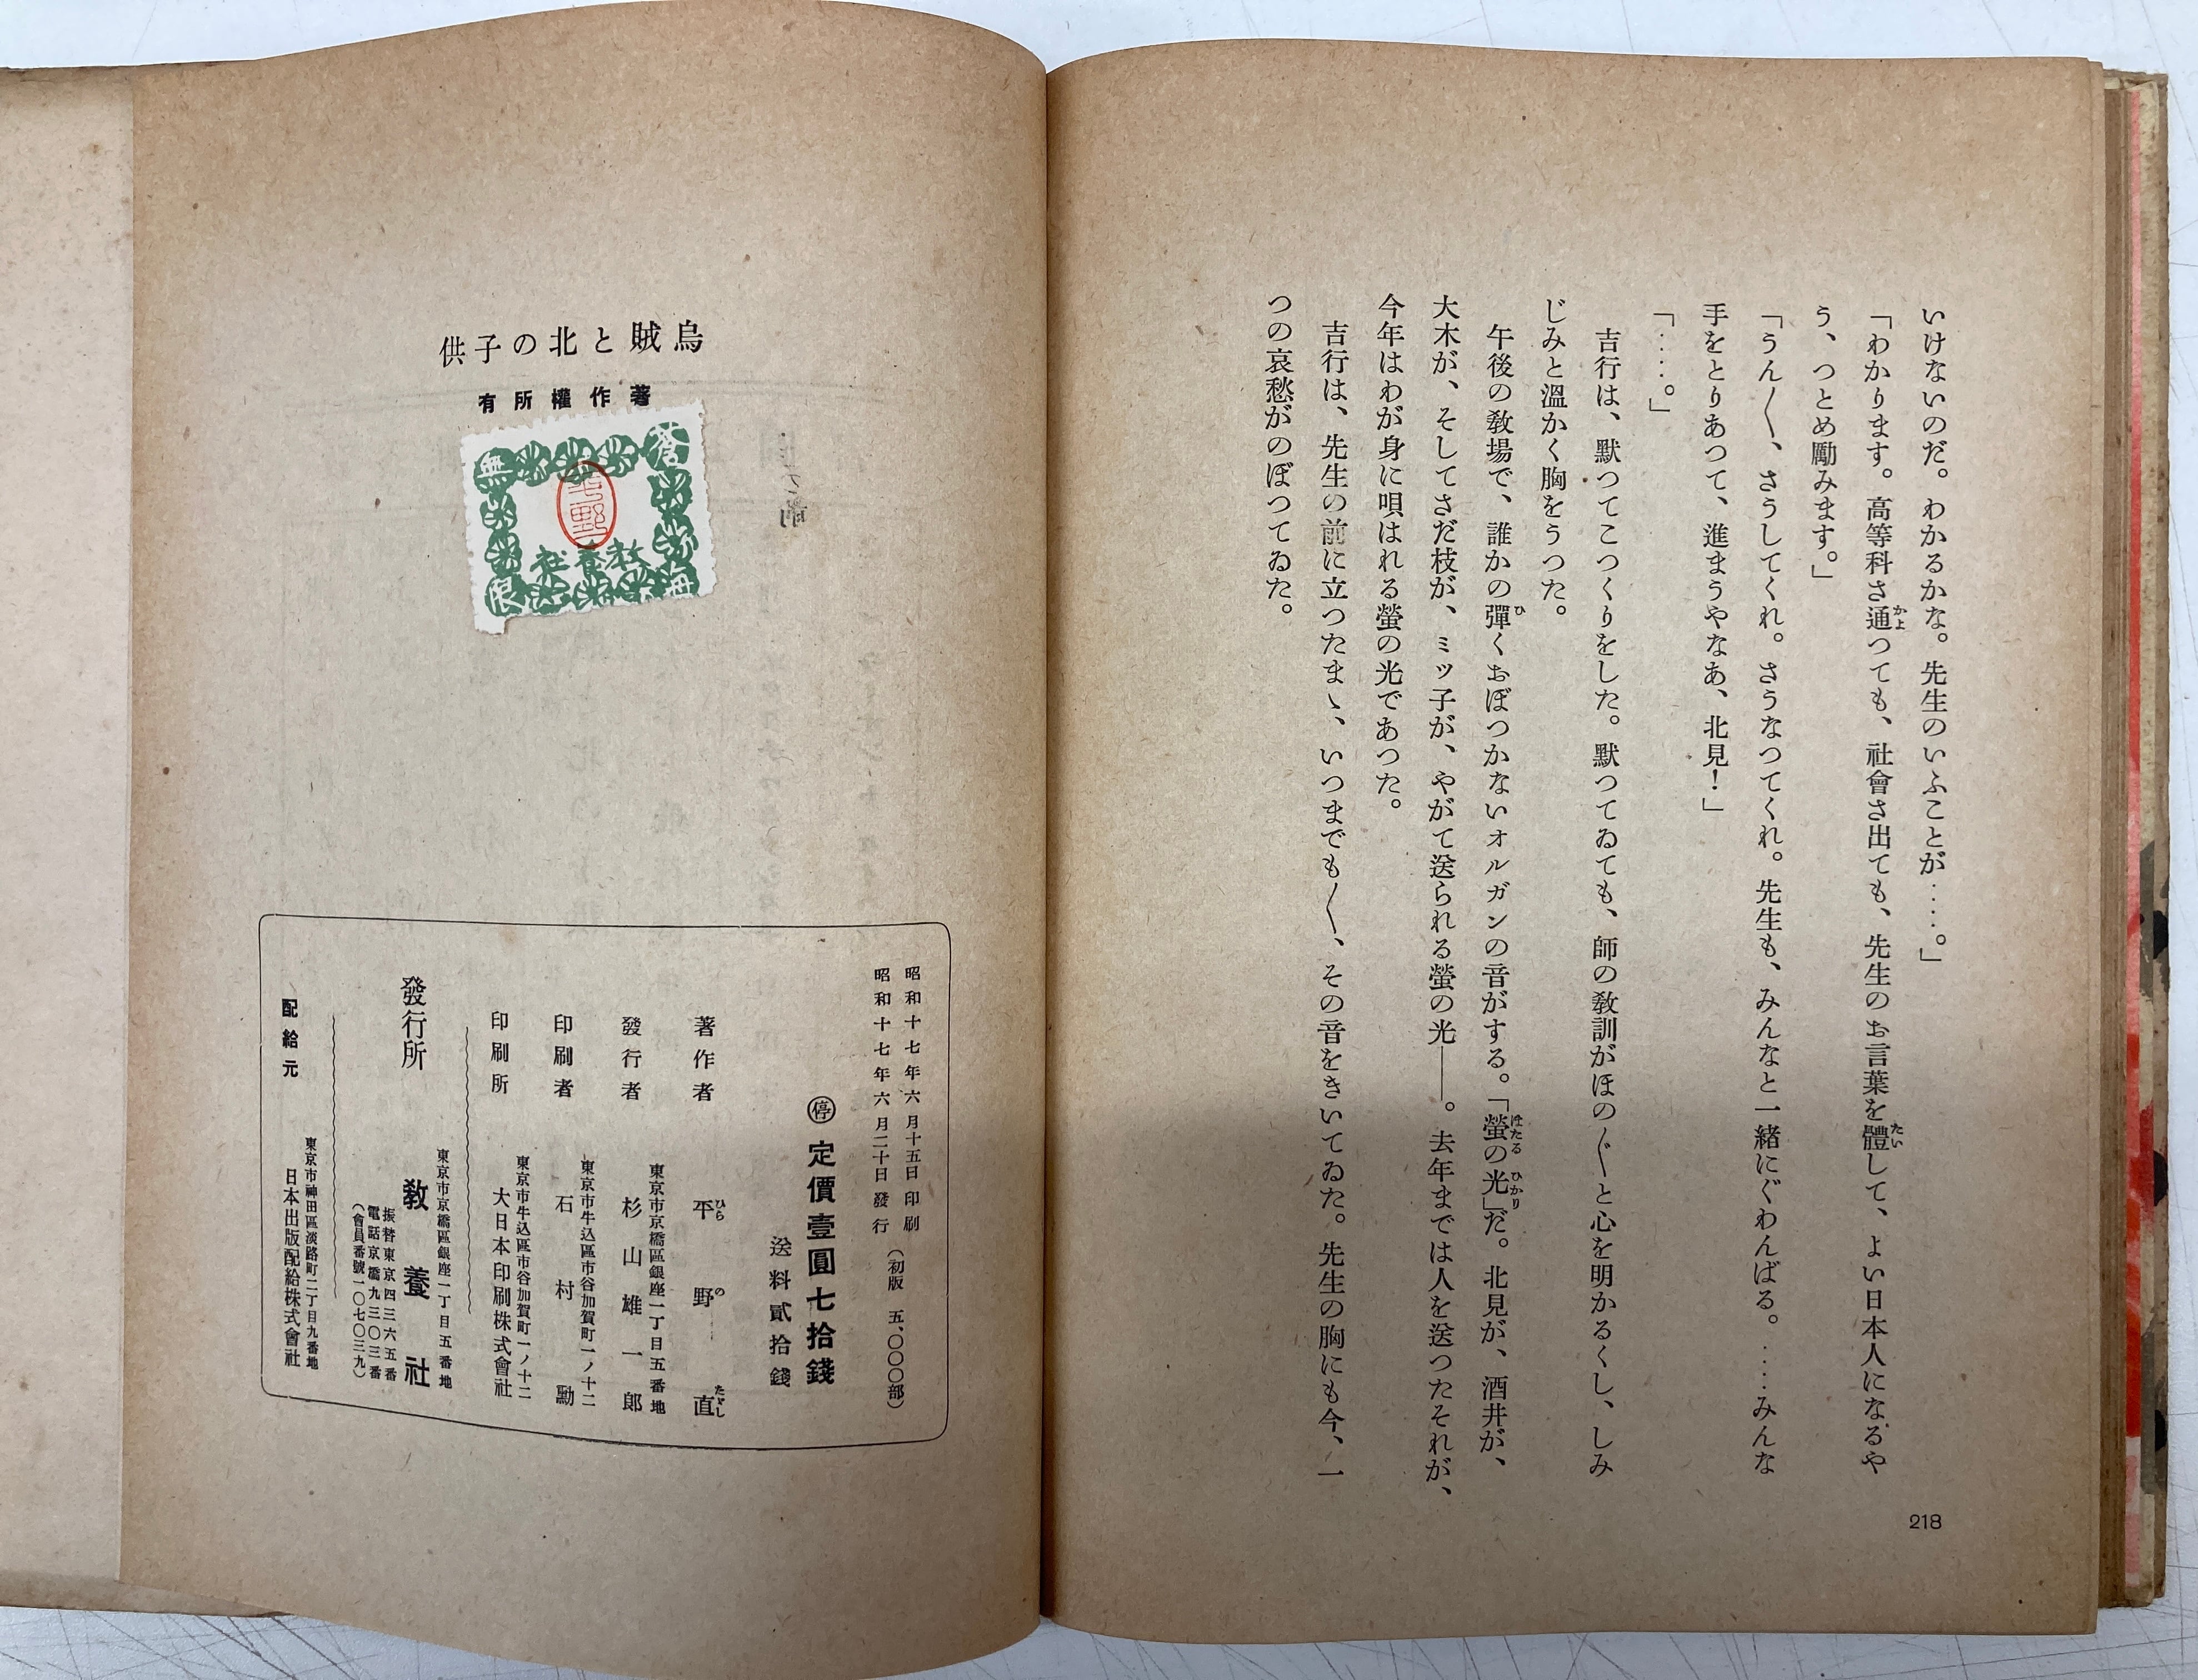 いけないのだ。わかるかな。先生のいふことが‥‥。」
「わかります。高等科さ通つても、社會さ出ても、先生のお言葉を體して、よい日本人になるや
う、つとめ勵みます。」
「うん〱、さうしてくれ。さうなつてくれ。先生も、みんなと一緒にぐわんばる。‥‥みんな
手をとりあつて、進まうやなあ、北見！」
「‥‥。」
吉行は、默つてこつくりをした。默つてゐても、師の敎訓がほの〲と心を明かるくし、しみ
じみと溫かく胸をうつた。
午後の敎場で、誰かの彈くおぼつかないオルガンの音がする。「螢の光」だ。北見が、酒井が、
大木が、そしてさだ枝が、ミッ子が、やがて送られる螢の光――。去年までは人を送つたそれが、
今年はわが身に唄はれる螢の光であつた。
吉行は、先生の前に立つたまゝ、いつまでも〱、その音をきいてゐた。先生の胸にも今、一
つの哀愁がのぼつてゐた。
218
烏賊と北の子供
著作權所有
蒼
無
海
限
敎養社
昭和十七年六月十五日印刷
昭和十七年六月二十日發行
（初版　五、〇〇〇部）
停 定價壹圓七拾錢
送料貳拾錢
著作者　平野直
ひら の たゞし
東京市京橋區銀座一丁目五番地
發行者　杉山雄一郎
東京市牛込區市谷加賀町一ノ十二
印刷者　石村勳
東京市牛込區市谷加賀町一ノ十二
印刷所　大日本印刷株式會社
東京市京橋區銀座一丁目五番地
發行所　敎養社
振替東京四三六五番
電話京橋九三〇三番
（會員番號一〇七〇三九）
東京市神田區淡路町二丁目九番地
配給元　日本出版配給株式會社